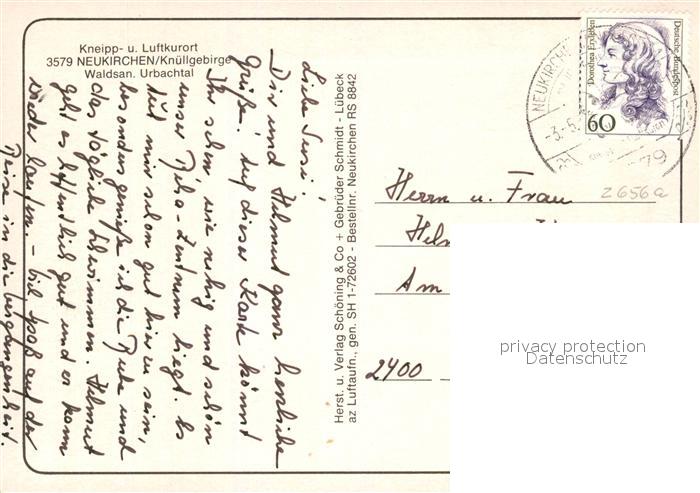 Kneipp- u. Luftkurort
3579 NEUKIRCHEN/Knüllgebirge
Waldsan. Urbachtal
Liebe Susi!
Dir und Helmut ganz herzliche
Grüße! Auf dieser Karte könnt
Ihr sehen, wie ruhig und schön
unser Reha-Zentrum liegt. Es
tut mir schon gut hier zu sein,
besonders genieße ich die Ruhe und
das tägliche Schwimmen. Helmut
geht es hoffentlich gut und er kann
wieder laufen. – Viel Spaß auf der
Reise in die Vergangenheit.
Herst. u. Verlag Schöning & Co + Gebrüder Schmidt - Lübeck
az Luftaufn., gen. SH 1-72602 - Bestellnr. Neukirchen RS 8842
Dorothea Erxleben
Deutsche Bundespost
60
NEUKIRCHEN
-3.-5.
79
Herrn u. Frau
z656a
Helm
Am
2400
privacy protection
Datenschutz